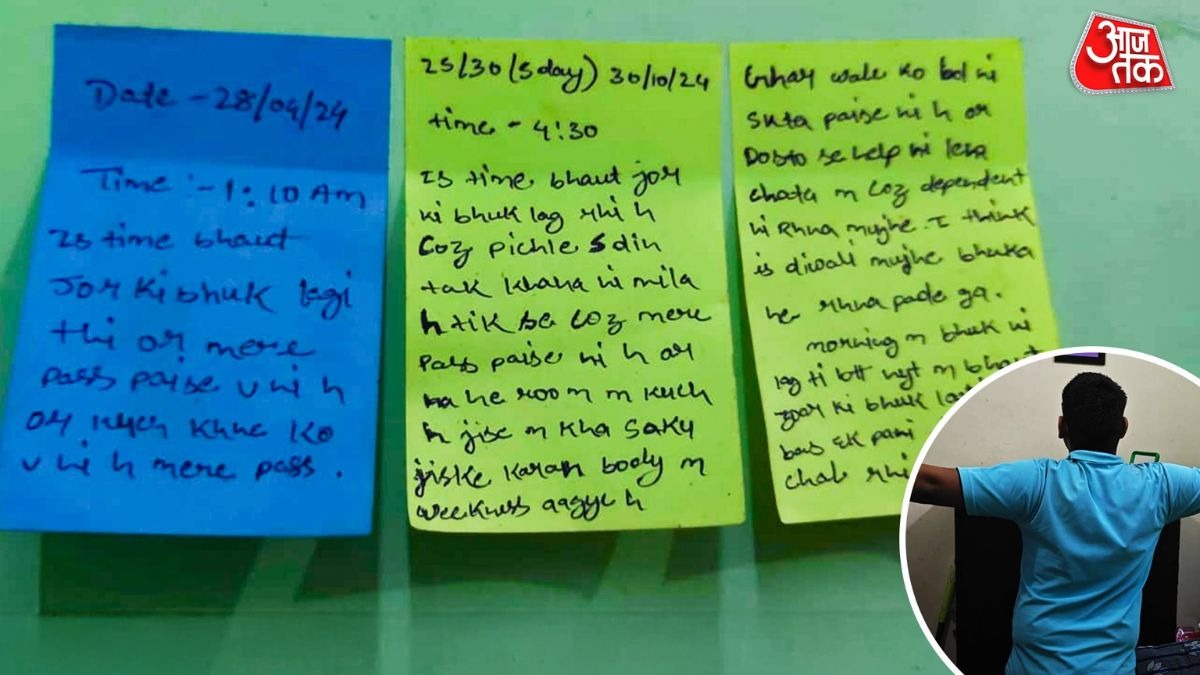 Date - 28/04/24
Time :- 1:10 Am
Is time bhaut
Jor Ki bhuk lagi
thi or mere
pass paise v ni h
or kuch khne ko
v ni h mere pass.
25/30 (5day) 30/10/24
time - 4:30
Is time bhaut jor
ki bhuk lag rhi h
Coz pichle 5 din
tak khana ni mila
h tik se coz mere
pass paise ni h or
na he room m kuch
h jise m kha saku
jiske karan body m
weekness aagye h
Ghar wale ko bol ni
skta paise ni h or
Dosto se help ni lena
chata m coz dependent
ni Rhna mujhe. I think
is diwali mujhe bhuka
he rhna pade ga.
morning m bhuk ni
lag ti btt nyt m bhaut
zoar ki bhuk
bas Ek pani
chal rhi
आज
तक